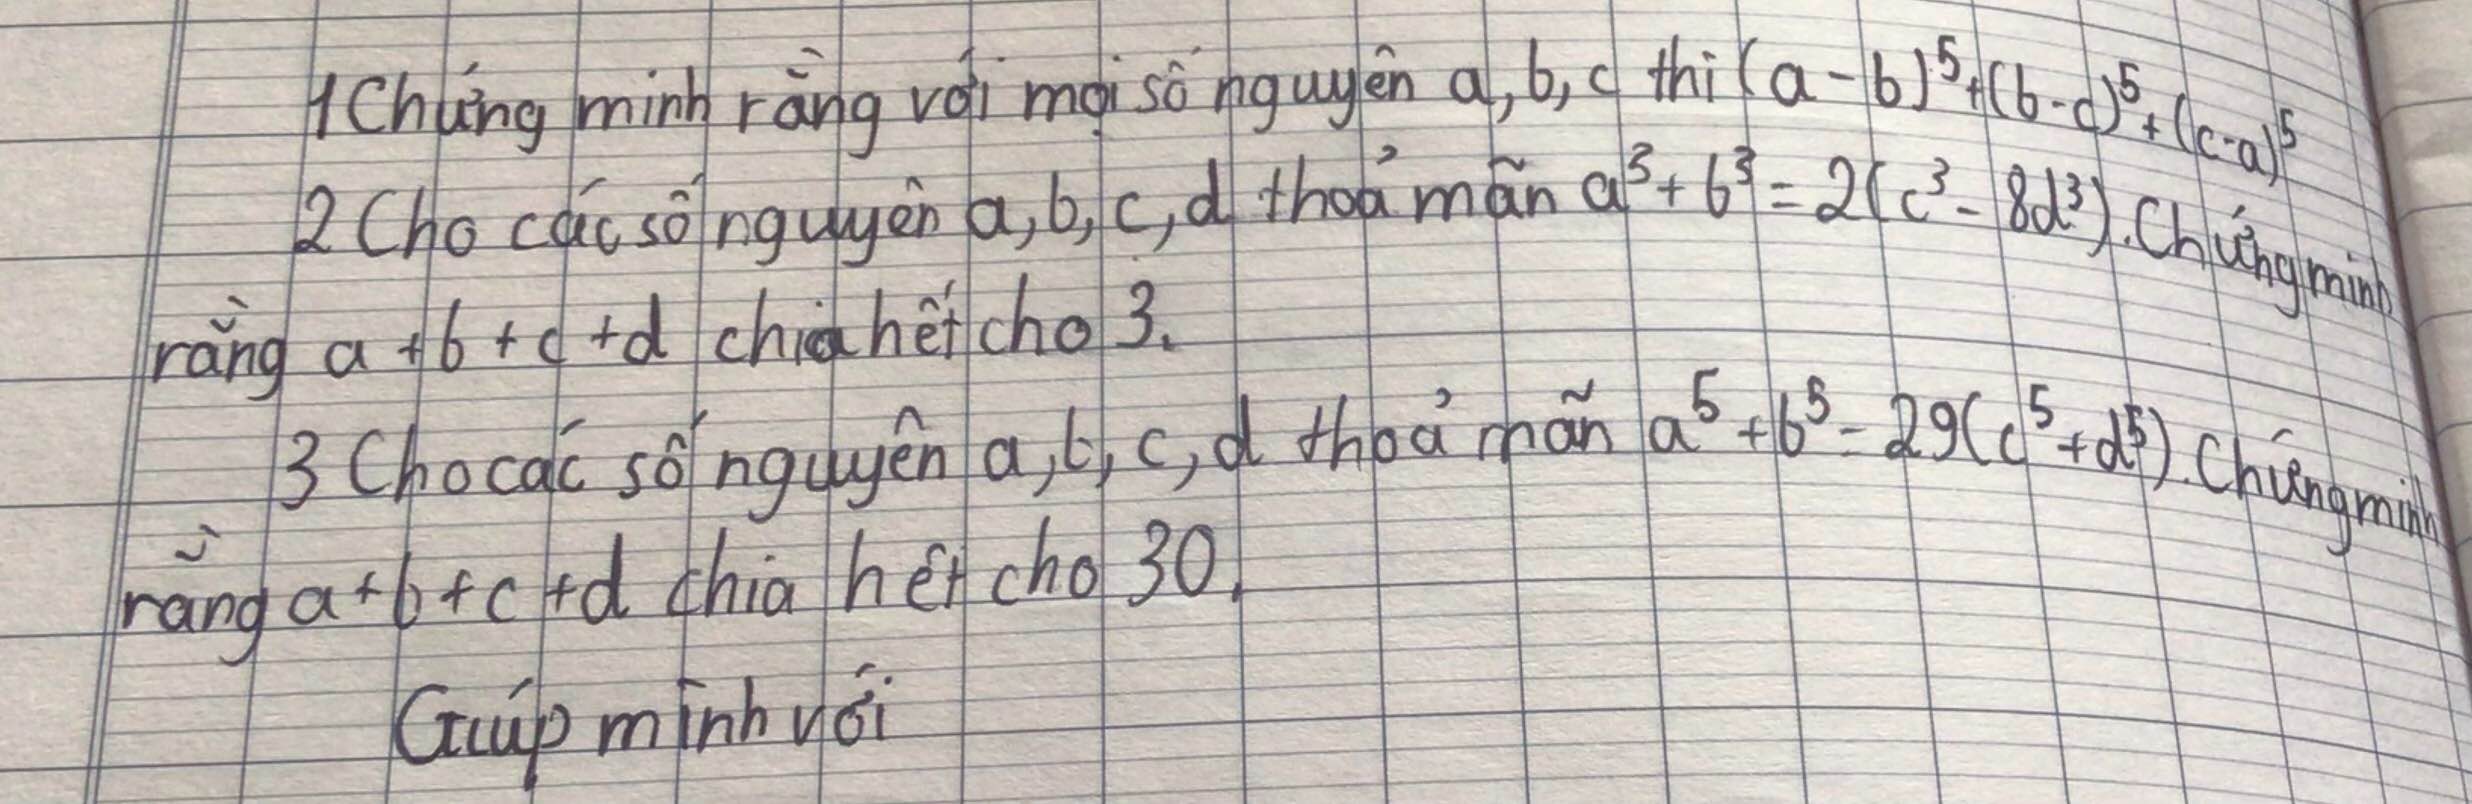 1 Chứng minh rằng với mọi số nguyên a, b, c thì (a-b)⁵+(b-c)⁵+(c-a)⁵
2 Cho các số nguyên a, b, c, d thoả mãn a³+b³=2(c³-8d³). Chứng minh
rằng a+b+c+d chia hết cho 3.
3 Cho các số nguyên a, b, c, d thoả mãn a⁵+b⁵=29(c⁵+d⁵). Chứng minh
rằng a+b+c+d chia hết cho 30.
Giúp mình với